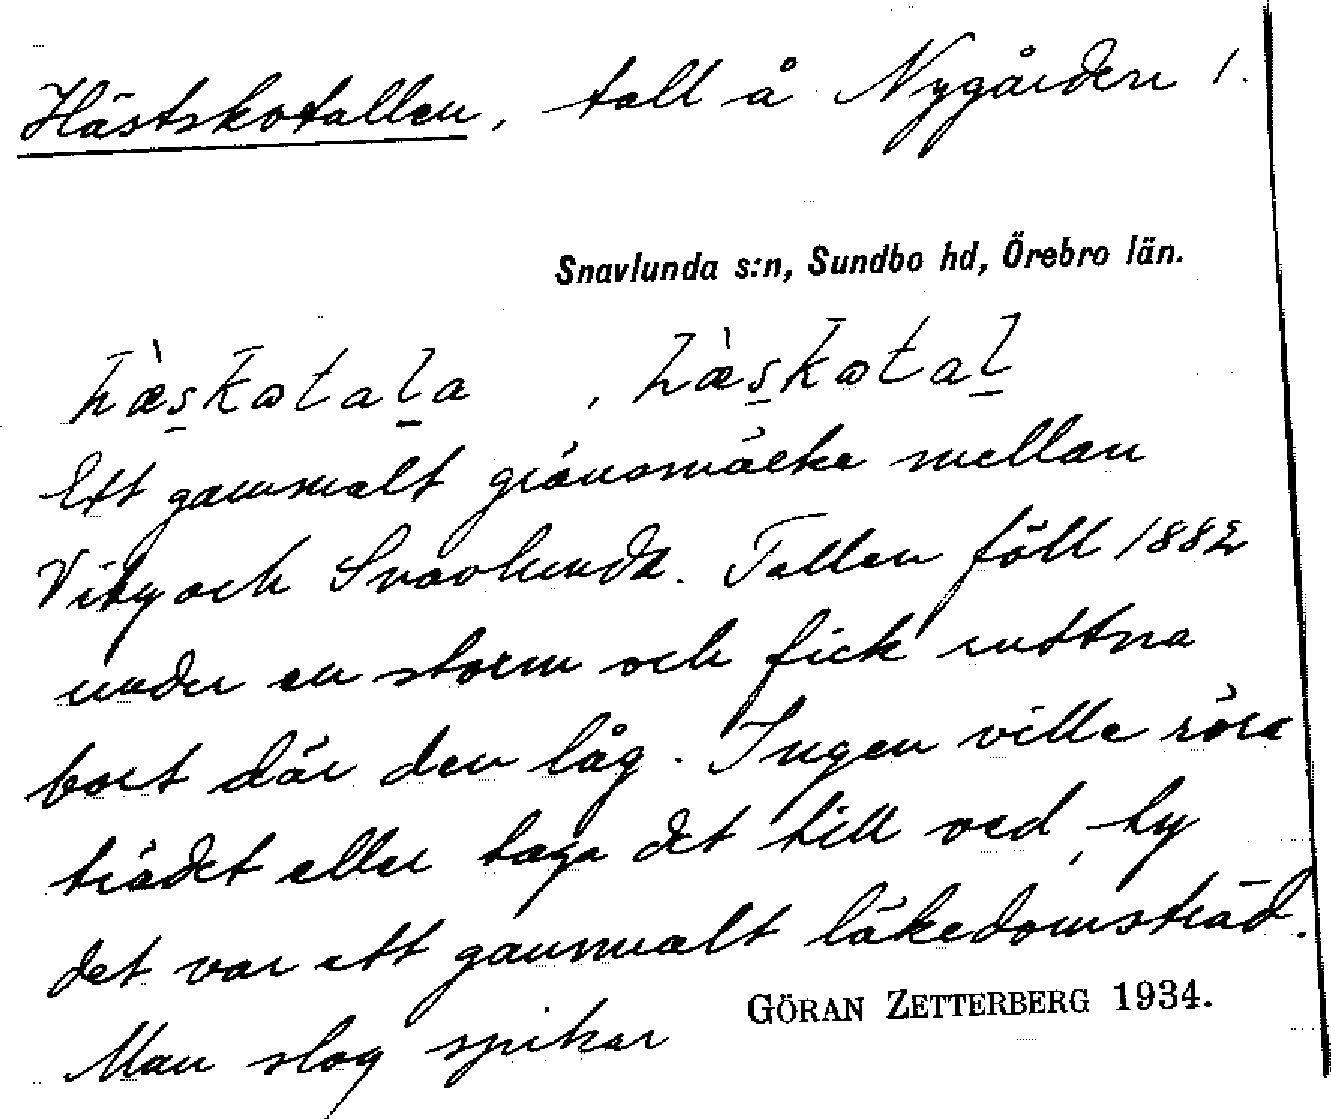 Hästskotallen, tall å Nygården 1.
Snavlunda s:n, Sundbo hd, Örebro län.
hæ̀skotala , hæ̀skotal
Ett gammalt gränsmärke mellan
Viby och Snavlunda. Tallen föll 1882
under en storm och fick ruttna
bort där den låg. Ingen ville röra
trädet eller taga det till ved, ty
det var ett gammalt läkedomsträd.
Man slog spikar
GÖRAN ZETTERBERG 1934.